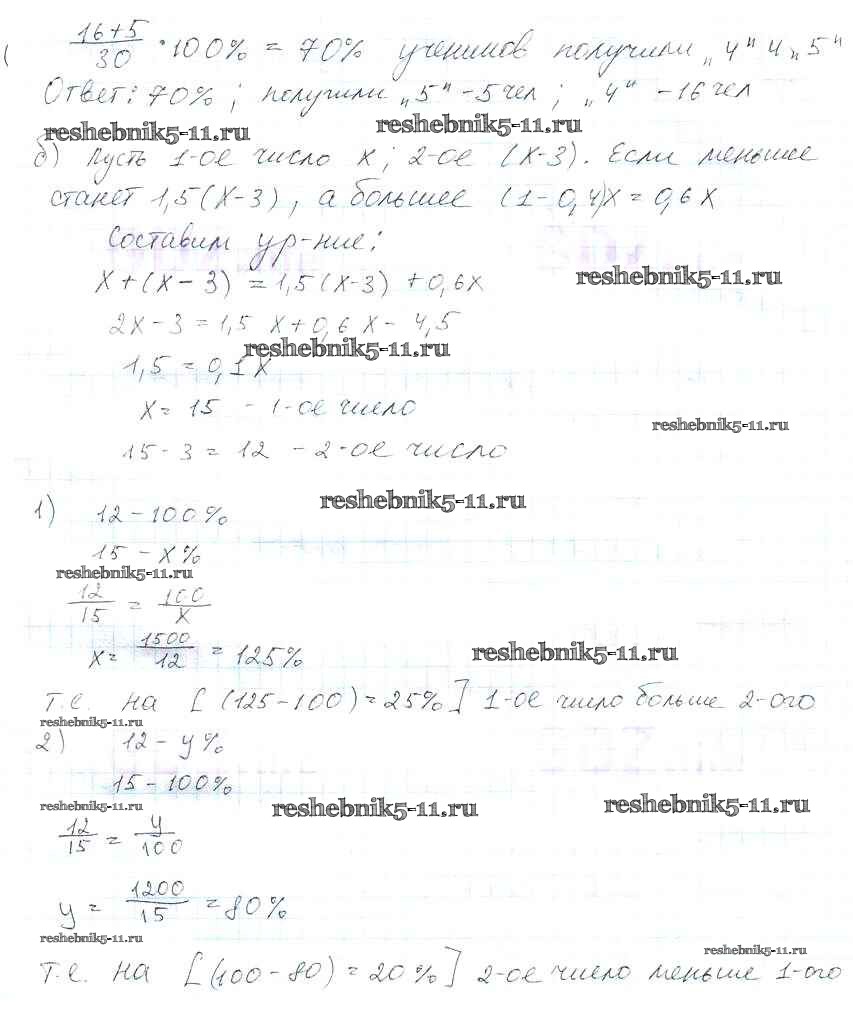 (16+5)/30 · 100% = 70% учеников получили „4" и „5"
Ответ: 70%; получили „5" - 5 чел; „4" - 16 чел
reshebnik5-11.ru reshebnik5-11.ru
б) Пусть 1-ое число x; 2-ое (x-3). Если меньшее
станет 1,5(x-3), а большее (1-0,4)x = 0,6x
Составим ур-ние:
reshebnik5-11.ru
x+(x-3) = 1,5(x-3) + 0,6x
2x-3 = 1,5x+0,6x-4,5
reshebnik5-11.ru
1,5 = 0,1x
x = 15 - 1-ое число
reshebnik5-11.ru
15-3 = 12 - 2-ое число
reshebnik5-11.ru
1) 12-100%
15-x%
reshebnik5-11.ru
12/15 = 100/x
x = 1500/12 = 125%
reshebnik5-11.ru
т.е. на [(125-100) = 25%] 1-ое число больше 2-ого
reshebnik5-11.ru
2) 12-y%
15-100%
reshebnik5-11.ru reshebnik5-11.ru reshebnik5-11.ru
12/15 = y/100
y = 1200/15 = 80%
reshebnik5-11.ru
reshebnik5-11.ru
т.е. на [(100-80) = 20%] 2-ое число меньше 1-ого